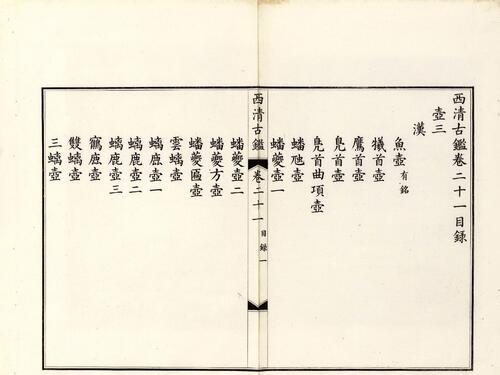 西清古鑑卷二十一目錄
壺三
漢
魚壺有銘
犧首壺
鷹首壺
鳧首壺
鳧首曲項壺
蟠虺壺
蟠夔壺一
西清古鑑 卷二十一 目錄 一
蟠夔壺二
蟠夔方壺
蟠夔匾壺
雲螭壺
螭鹿壺一
螭鹿壺二
螭鹿壺三
雙螭壺
三螭壺